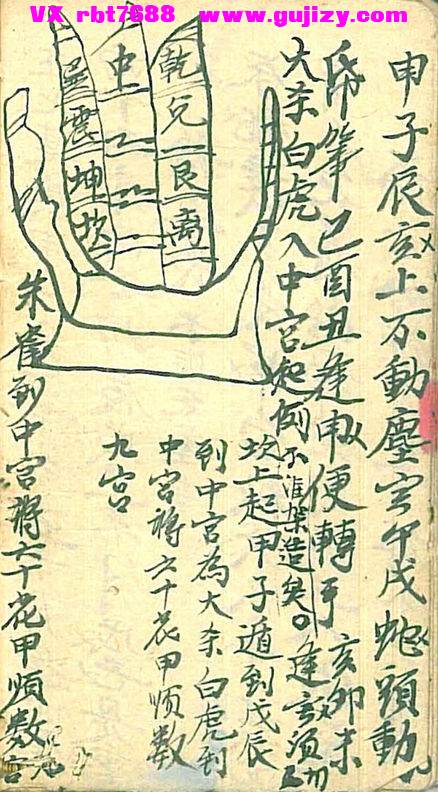 VX rbt7688 www.gujizy.com
申子辰亥上不動塵寅午戌蛇頭動
筆巳酉丑逢申便轉手亥卯未
大杀白虎入中宮起例不准架造矣。逢寅須
坎上起甲子遁到戊辰
到中宮為大杀白虎到
中宮將六十花甲順數
九宮
朱雀到中宮將六十花甲順數九宮
乾兌艮離
中
巽震坤坎